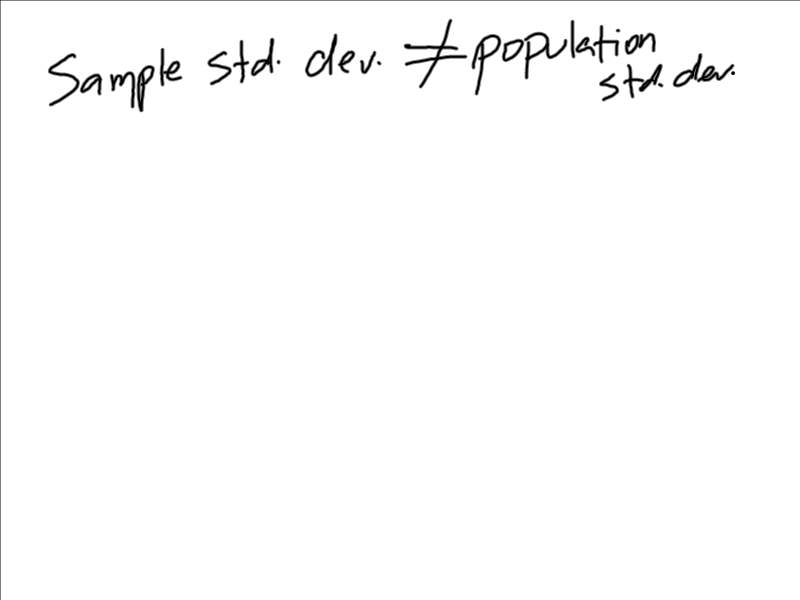 Sample std. dev. ≠ population
std. dev.